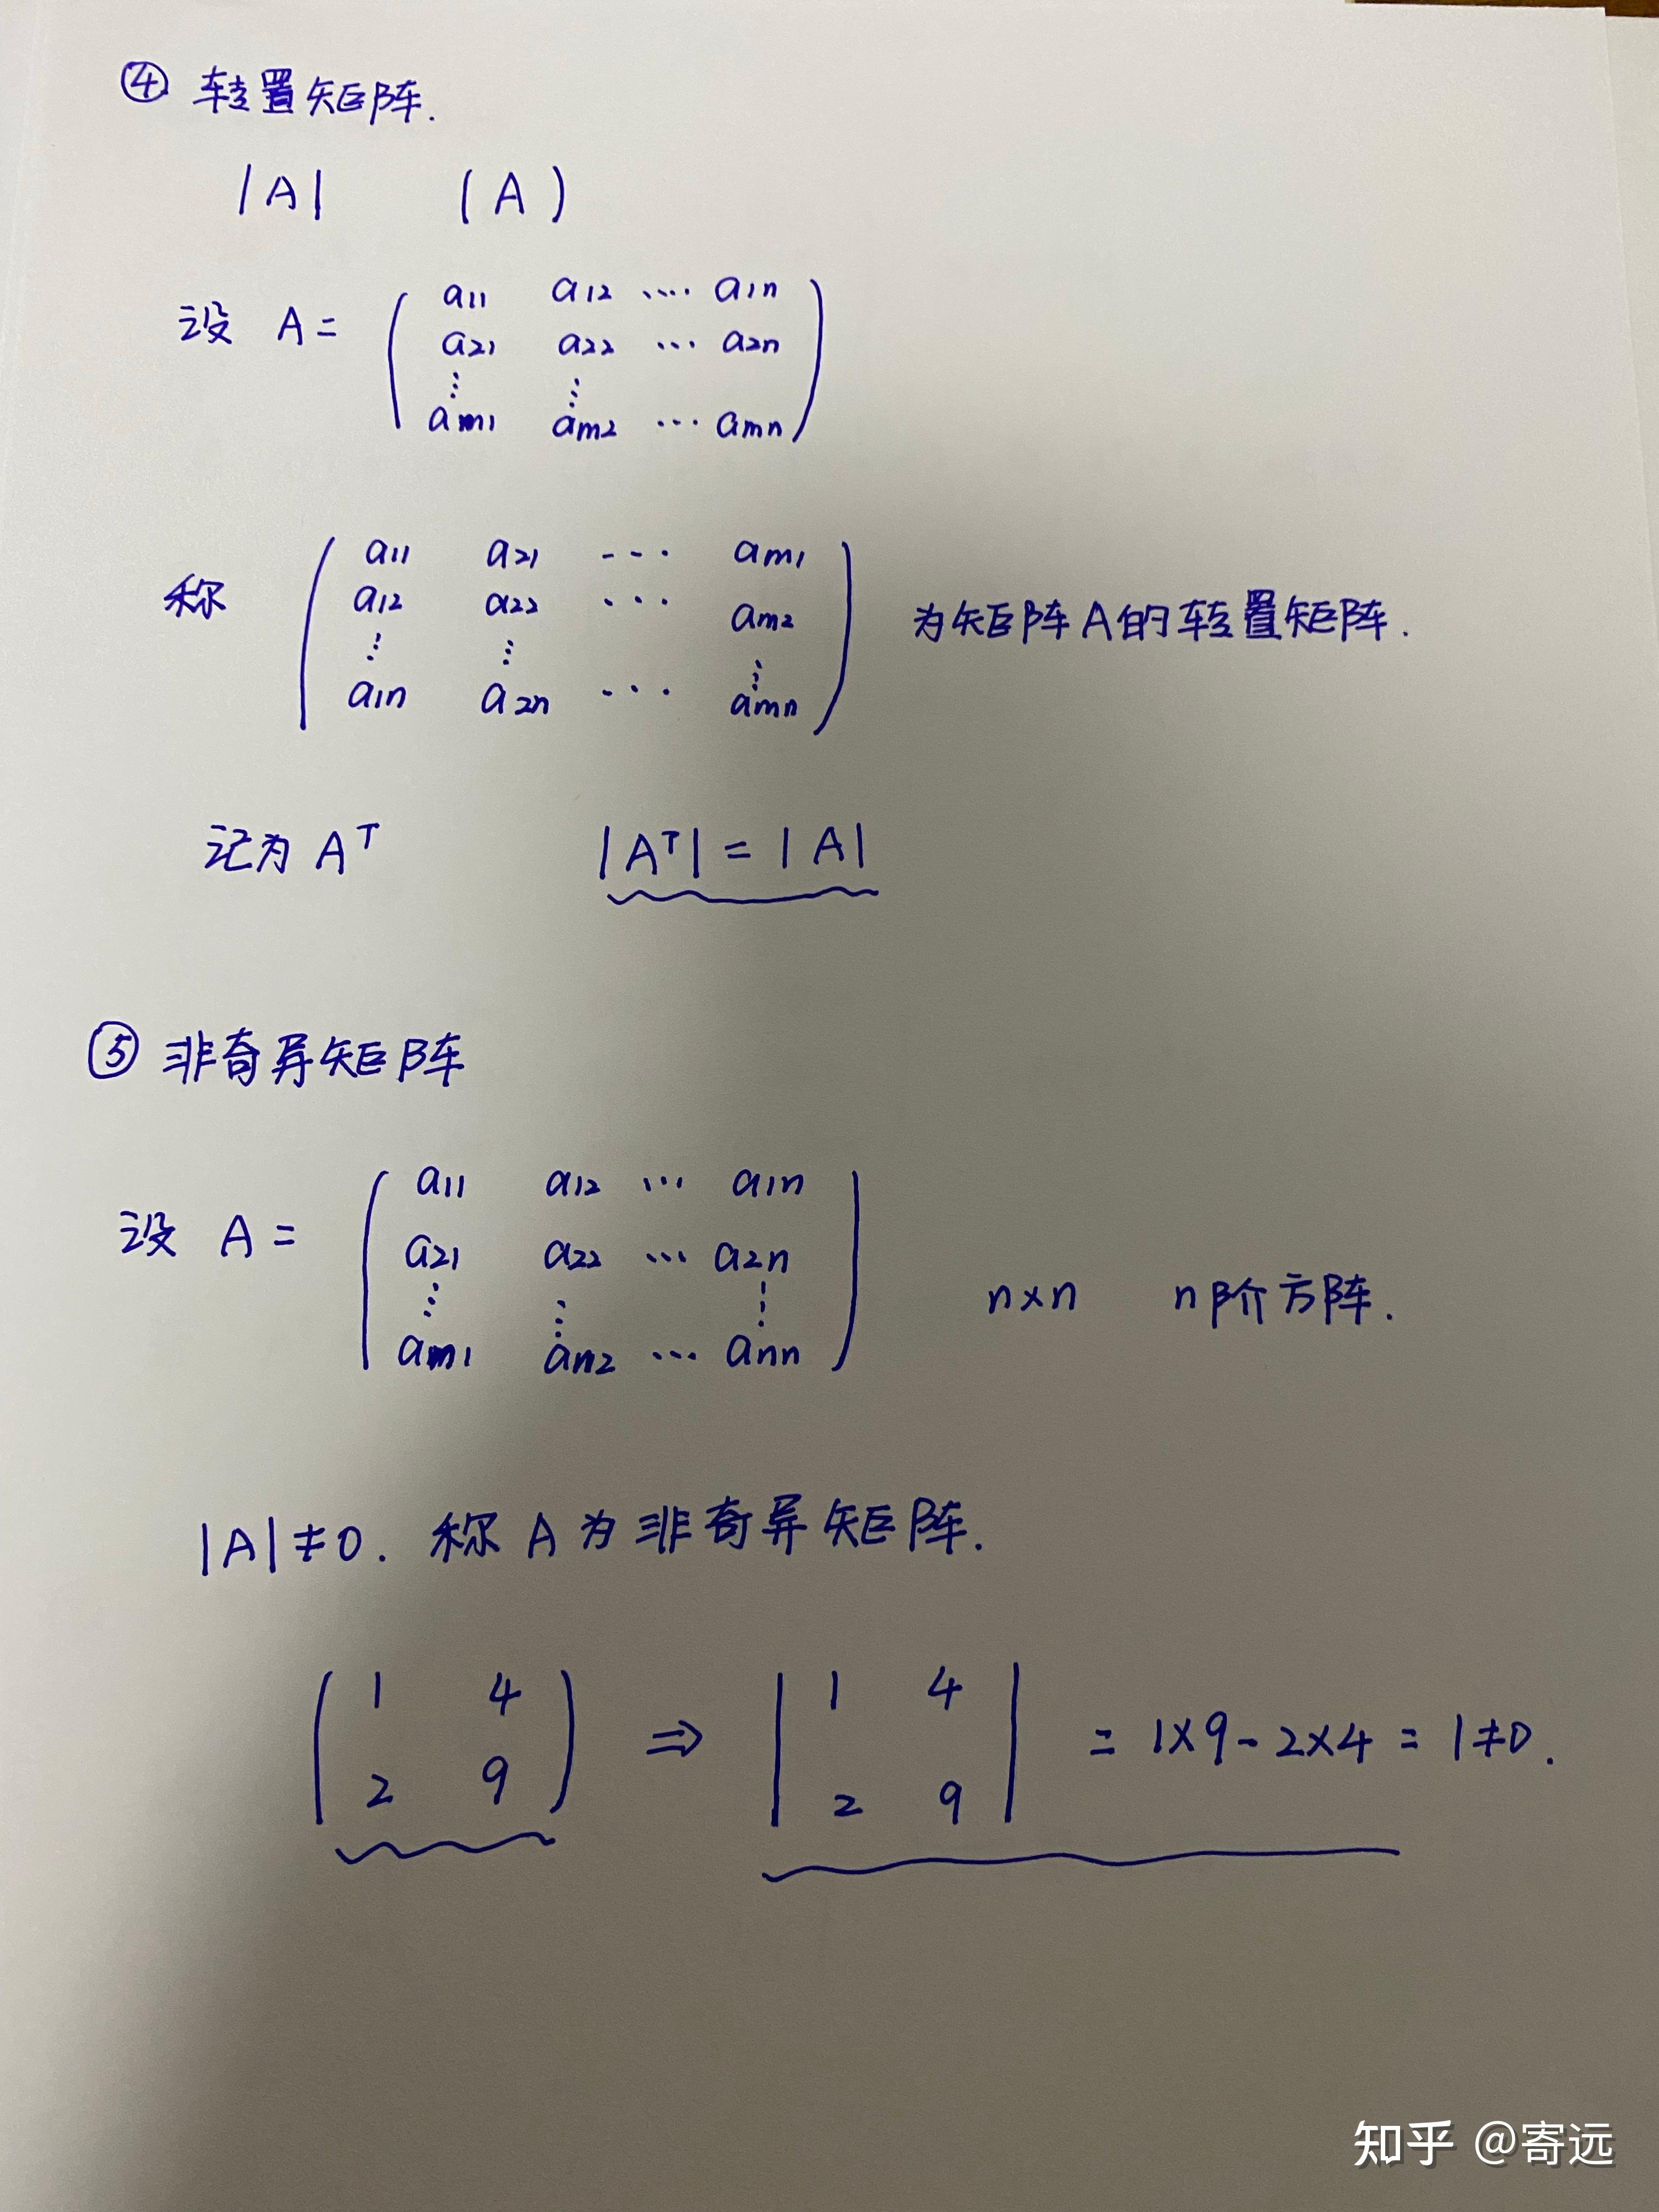 ④ 转置矩阵.
|A| (A)
设 A = ( a11 a12 ···· a1n
a21 a22 ··· a2n
⋮ ⋮
am1 am2 ··· amn )
称 ( a11 a21 --· am1
a12 a22 ··· am2
⋮ ⋮ ⋮
a1n a2n ··· amn ) 为矩阵A的转置矩阵.
记为 Aᵀ |Aᵀ| = |A|
⑤ 非奇异矩阵
设 A = ( a11 a12 ··· a1n
a21 a22 ··· a2n
⋮ ⋮ ⋮
am1 an2 ··· ann ) n×n n阶方阵.
|A|≠0. 称 A 为非奇异矩阵.
( 1 4
2 9 ) ⇒ | 1 4
2 9 | = 1×9-2×4 = 1≠0.
知乎 @寄远